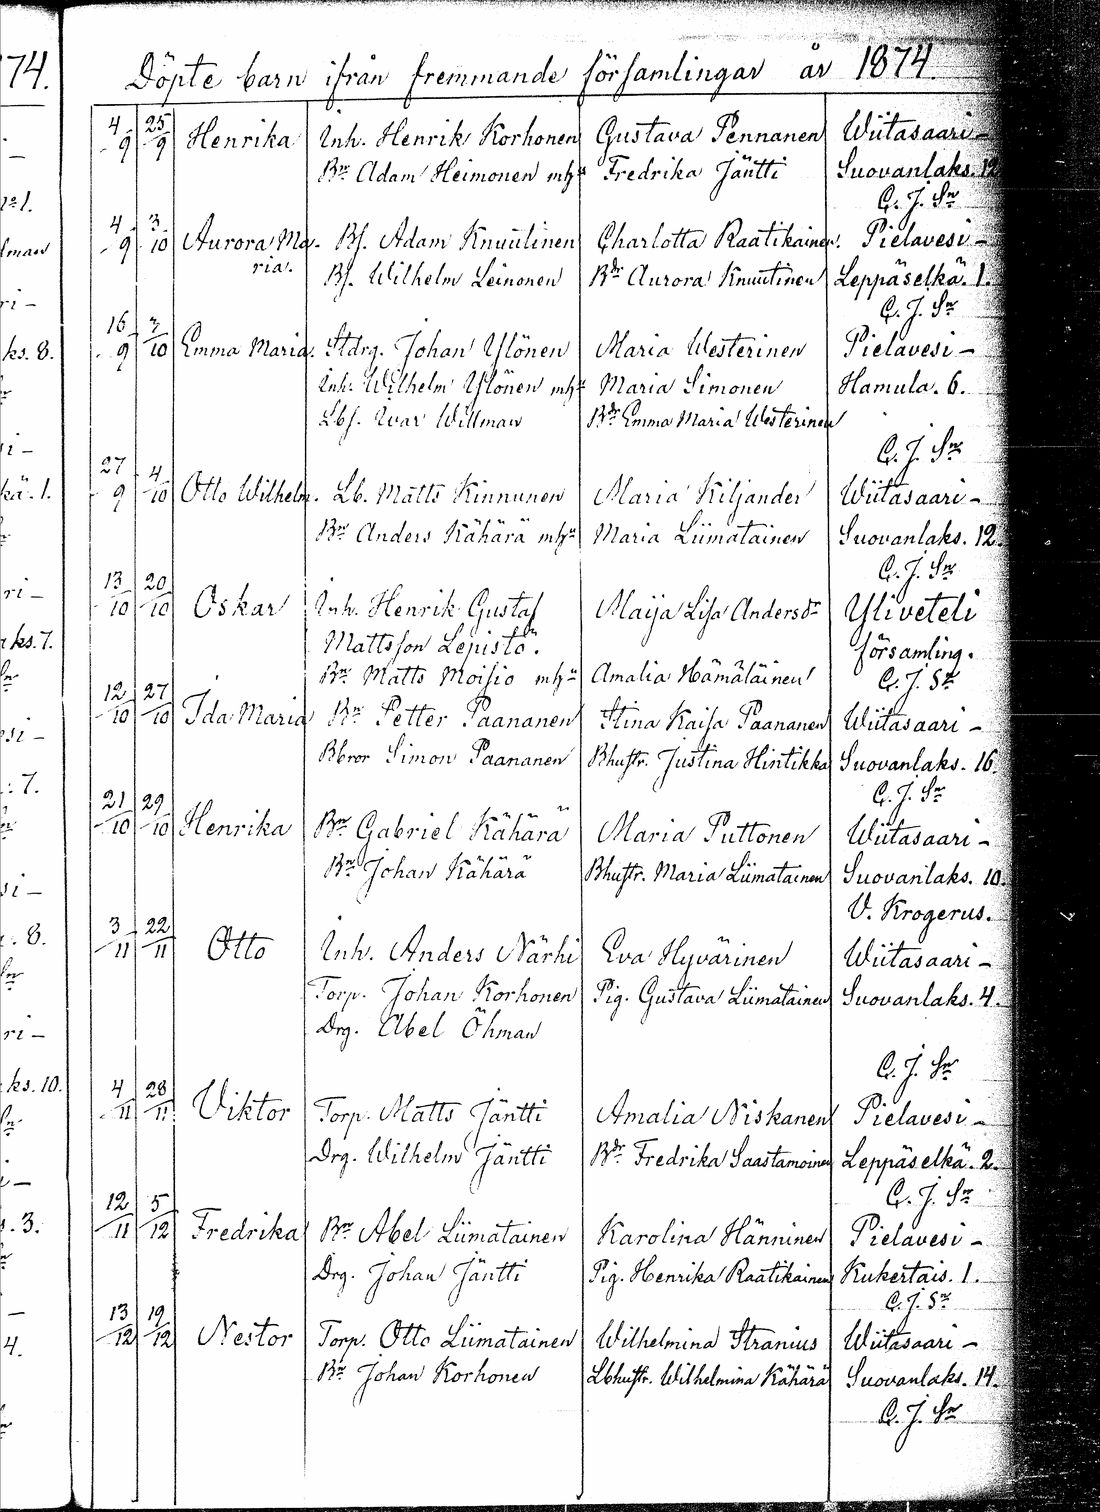 Döpte barn ifrån fremmande församlingar år 1874.
4/9 25/9 Henrika Inh. Henrik Korhonen Gustava Pennanen Wiitasaari –
Bn Adam Heimonen mhu Fredrika Jäntti Suovanlaks. 12
C. J. Sn
4/9 3/10 Aurora Ma- Bf. Adam Knuutinen Charlotta Raatikainen. Pielavesi –
ria. Bf. Wilhelm Leinonen Bdr Aurora Knuutinen Leppäselkä. 1.
C. J. Sn
16/9 3/10 Emma Maria. Stdrg. Johan Ylönen Maria Westerinen Pielavesi –
Inh. Wilhelm Ylönen mhu Maria Simonen Hamula. 6.
Lbf. Ivar Willman Bdr Emma Maria Westerinen
C. J. Sn
27/9 4/10 Otto Wilhelm. Lb. Matts Kinnunen Maria Kiljander Wiitasaari –
Bn Anders Kähärä mhu Maria Liimatainen Suovanlaks. 12.
C. J. Sn
13/10 20/10 Oskar Inh. Henrik Gustaf Maija Lisa Andersdr Yliveteli
Mattsson Lepistö. församling.
Bn Matts Moisio mhu Amalia Hämäläinen C. J. Sn
12/10 27/10 Ida Maria Bn Petter Paananen Stina Kaisa Paananen Wiitasaari –
Bbror Simon Paananen Bhustr. Justina Hintikka Suovanlaks. 16.
C. J. Sn
21/10 29/10 Henrika Bn Gabriel Kähärä Maria Puttonen Wiitasaari –
Bn Johan Kähärä Bhustr. Maria Liimatainen Suovanlaks. 10.
V. Krogerus.
3/11 22/11 Otto Inh. Anders Närhi Eva Hyvärinen Wiitasaari –
Torp. Johan Korhonen Pig. Gustava Liimatainen Suovanlaks. 4.
Drg. Abel Öhman
C. J. Sn
4/11 28/11 Viktor Torp. Matts Jäntti Amalia Niskanen Pielavesi –
Drg. Wilhelm Jäntti Bdr Fredrika Saastamoinen Leppäselkä. 2.
C. J. Sn
12/11 5/12 Fredrika Bn Abel Liimatainen Karolina Hänninen Pielavesi –
Drg. Johan Jäntti Pig. Henrika Raatikainen Kukertais. 1.
C. J. Sn
13/12 19/12 Nestor Torp. Otto Liimatainen Wilhelmina Stranius Wiitasaari –
Bn Johan Korhonen Lbhustr. Wilhelmina Kähärä Suovanlaks. 14.
C. J. Sn